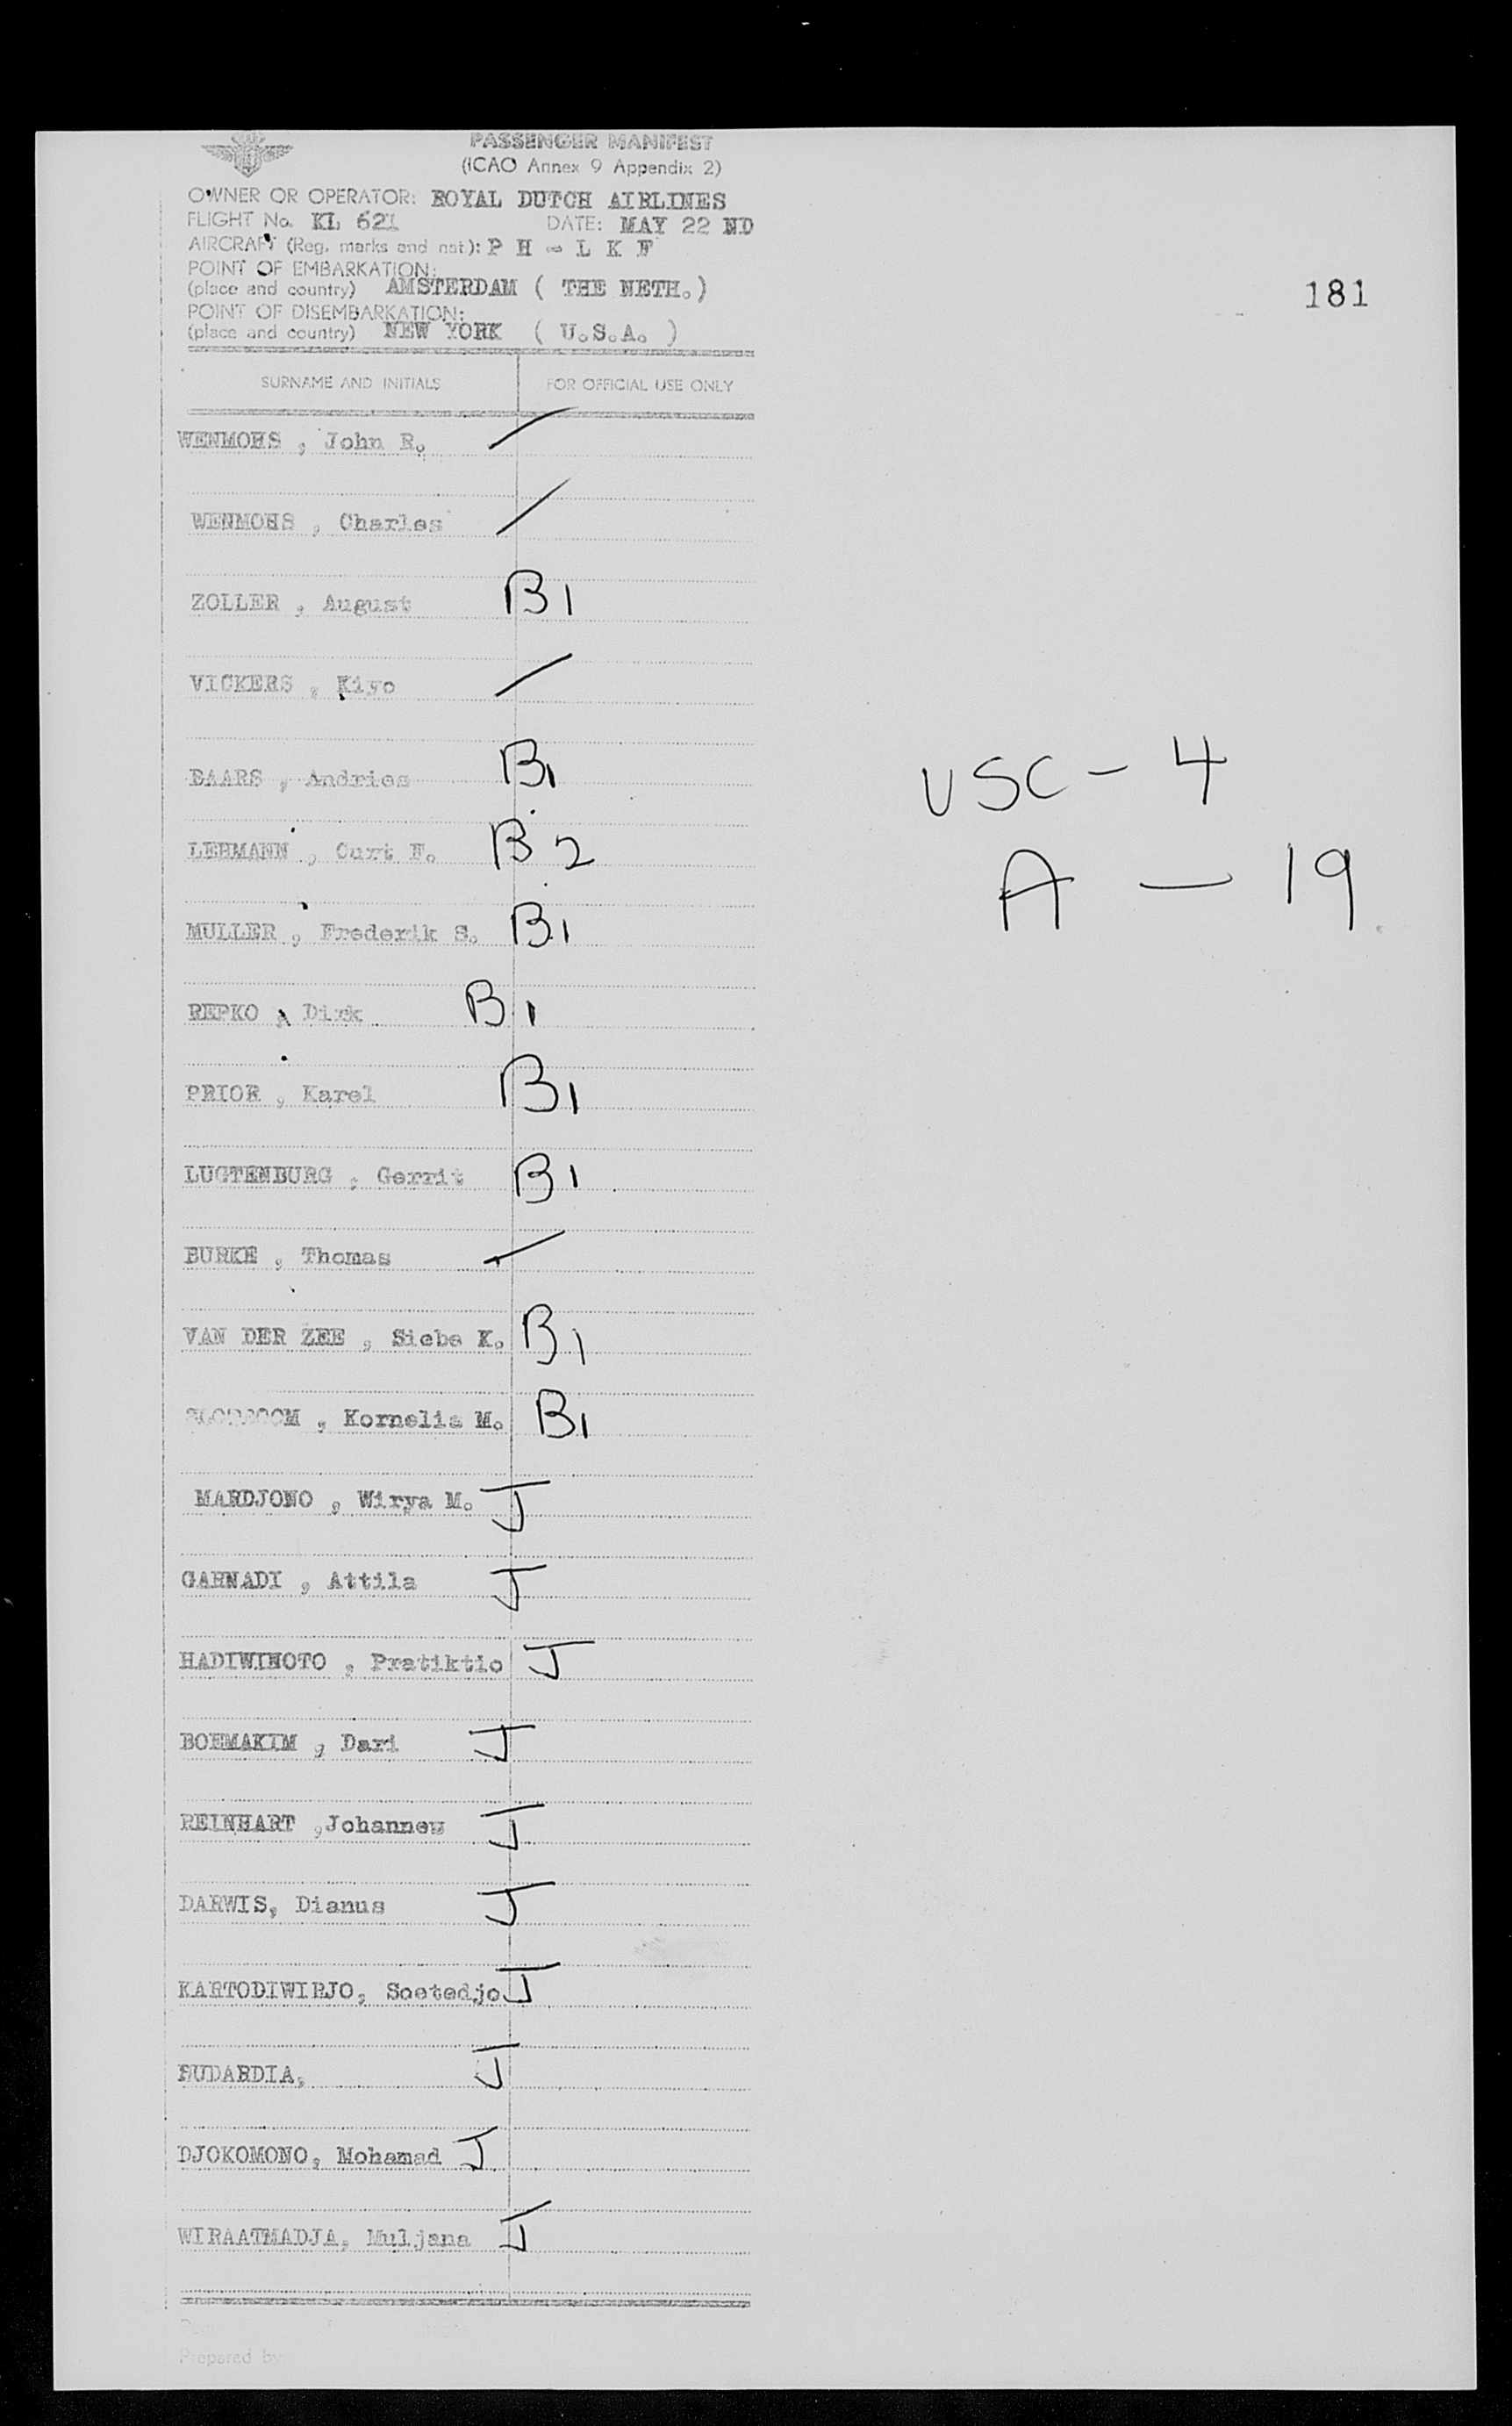 PASSENGER MANIFEST
(ICAO Annex 9 Appendix 2)
OWNER OR OPERATOR: ROYAL DUTCH AIRLINES
FLIGHT No. KL 621 DATE: MAY 22 ND
AIRCRAFT (Reg. marks and nat): P H - L K F
POINT OF EMBARKATION:
(place and country) AMSTERDAM ( THE NETH.)
181
POINT OF DISEMBARKATION:
(place and country) NEW YORK ( U.S.A. )
SURNAME AND INITIALS FOR OFFICIAL USE ONLY
WENMOHS , John R. /
WENMOHS , Charles /
ZOLLER , August B1
VICKERS , Kiyo /
BAARS , Andries B1
USC - 4
LEHMANN , Curt F. B2
A - 19
MULLER , Frederik S. B1
REPKO , Dirk B1
PRIOR , Karel B1
LUGTENBURG , Gerrit B1
BURKE , Thomas /
VAN DER ZEE , Siebe K. B1
, Kornelis M. B1
MARDJONO , Wirya M. J
GARNADI , Attila J
HADIWINOTO , Pratiktio J
BOEMAKIM , Dari J
REINHART ,Johannes J
DARWIS, Dianus J
KARTODIWIRJO, Soetedjo J
J
DJOKOMONO, Mohamad J
WIRAATMADJA, Muljana J
Prepared by